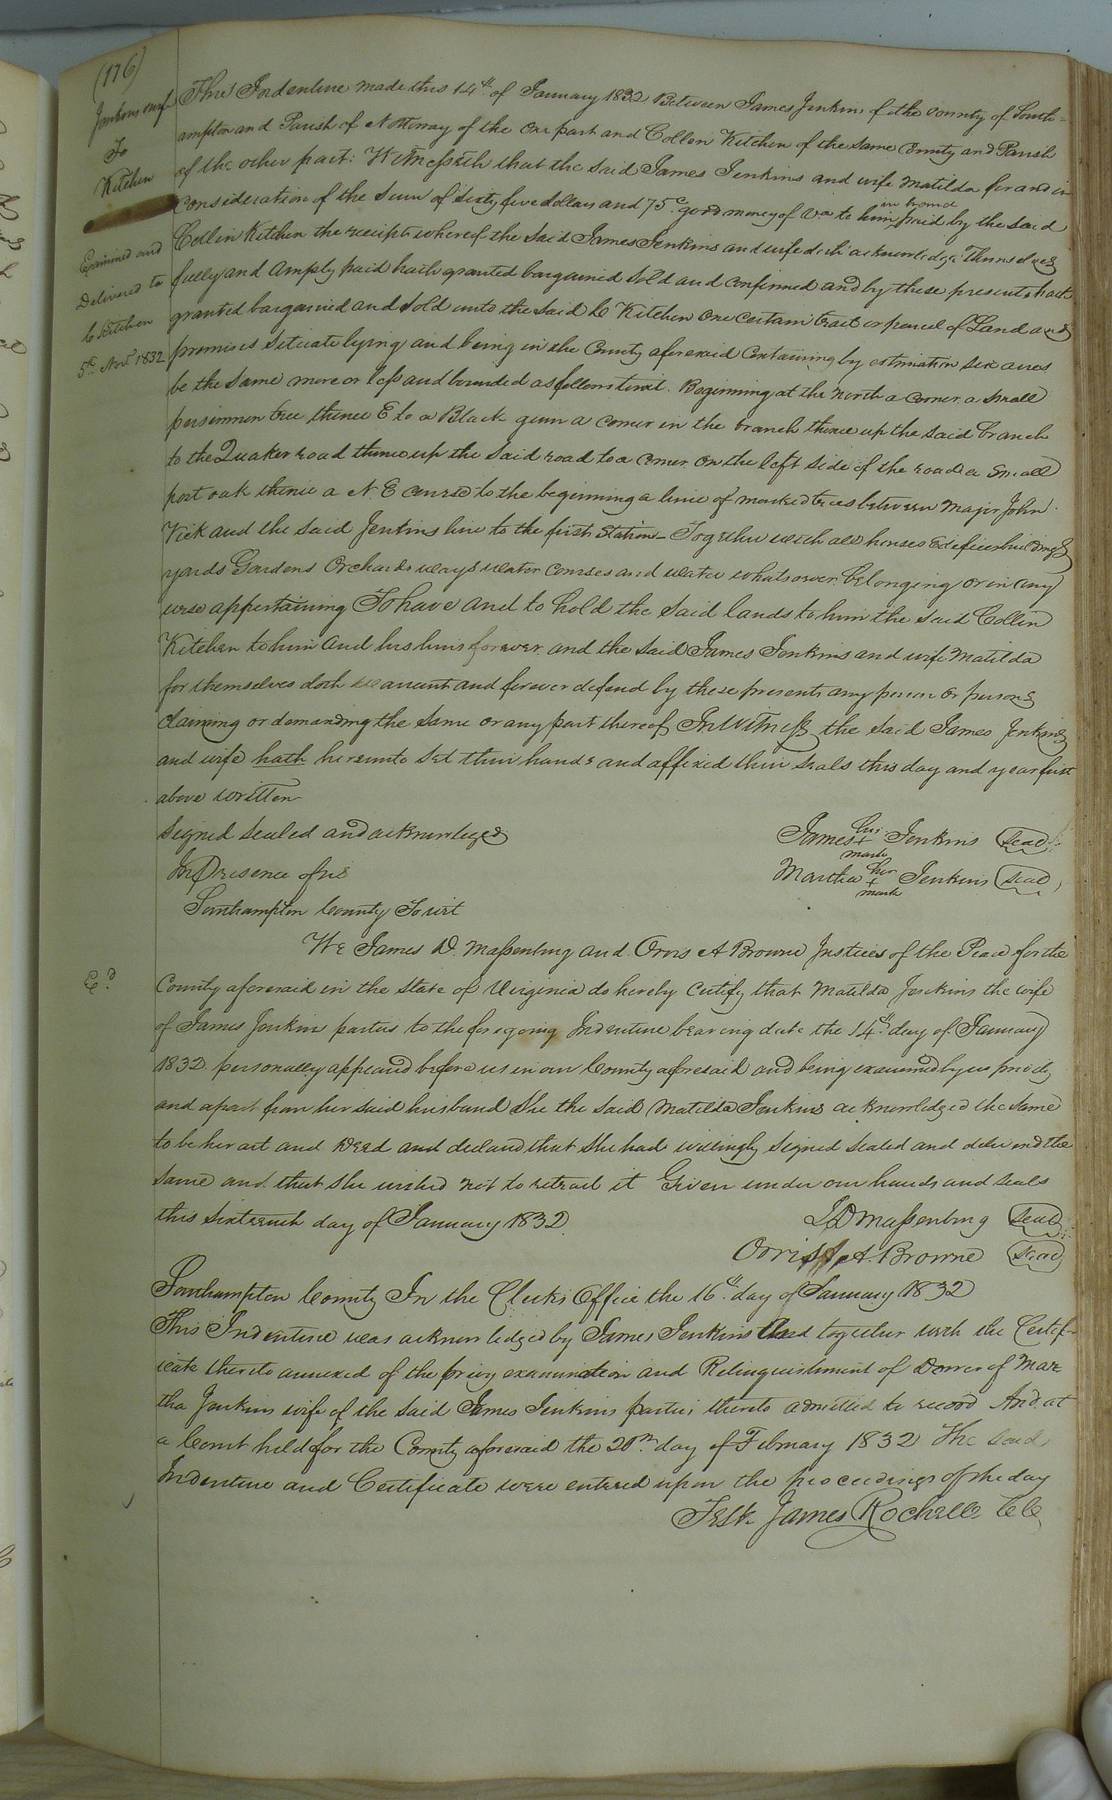 (176)
Jenkins & wife
To
Kitchen
Examined and
Delivered to
C Kitchen
5th Nov. 1832
This Indenture made this 14th of January 1832 Between James Jenkins of the County of South-
ampton and Parish of Nottoway of the one part and Collin Kitchen of the same County and Parish
of the other part: Witnesseth that the said James Jenkins and wife Matilda for and in
Consideration of the Sum of sixty five dollars and 75 c good money of Va to him in hand paid by the said
Collin Kitchen the receipt whereof the said James Jenkins and wife doth acknowledge Themselves
fully and Amply paid hath granted bargained Sold and Confirmed and by these presents hath
granted bargained and Sold unto the said C Kitchen One certain tract or parcel of Land and
premises Situate lying and being in the County aforesaid Containing by estimation six acres
be the same more or less and bounded as follows towit. Beginning at the North a Corner a small
persimmon tree thence E to a Black gum a corner in the branch thence up the said branch
to the Quaker road thence up the said road to a corner on the left side of the road a Small
post oak thence a N. E course to the beginning a line of marked trees between Major John
Vick and the said Jenkins line to the first Station- Together with all houses Edefices buildings
yards Gardens Orchards ways water courses and water whatsoever belonging or in any
wise appertaining To have and to hold the said lands to him the said Collin
Kitchen to him and his heirs forever and the said James Jenkins and wife Matilda
for themselves doth warrant and forever defend by these presents any person or persons
claiming or demanding the same or any part thereof In Witness the said James Jenkins
and wife hath hereunto Set their hands and affixed their seals this day and year first
above written
Signed Sealed and acknowledged
In Presence of us
James his + mark Jenkins Seal
Martha her + mark Jenkins Seal
Southampton County Towit
We James D. Massenburg and Orris A Browne Justices of the Peace for the
Ex.d
County aforesaid in the State of Virginia do hereby Certify that Matilda Jenkins the wife
of James Jenkins parties to the foregoing Indenture bearing date the 14th day of January
1832 personally appeared before us in our County aforesaid and being examined by us privily
and apart from her said husband She the said Matilda Jenkins acknowledged the same
to be her act and Deed and declared that she had willingly Signed Sealed and delivered the
same and that she wished not to retract it Given under our hands and seals
this Sixteenth day of January 1832
J D Massenburg Seal
Orris A. Browne Seal
Southampton County In the Clerks Office the 16th day of January 1832
This Indenture was acknowledged by James Jenkins and together with the Certif-
icate thereto annexed of the privy examination and Relinquishment of Dower of Mar
tha Jenkins wife of the said James Jenkins parties thereto admitted to record And at
a Court held for the County aforesaid the 20th day of February 1832 The said
Indenture and Certificate were entered upon the proceedings of the day
Teste James Rochelle CC